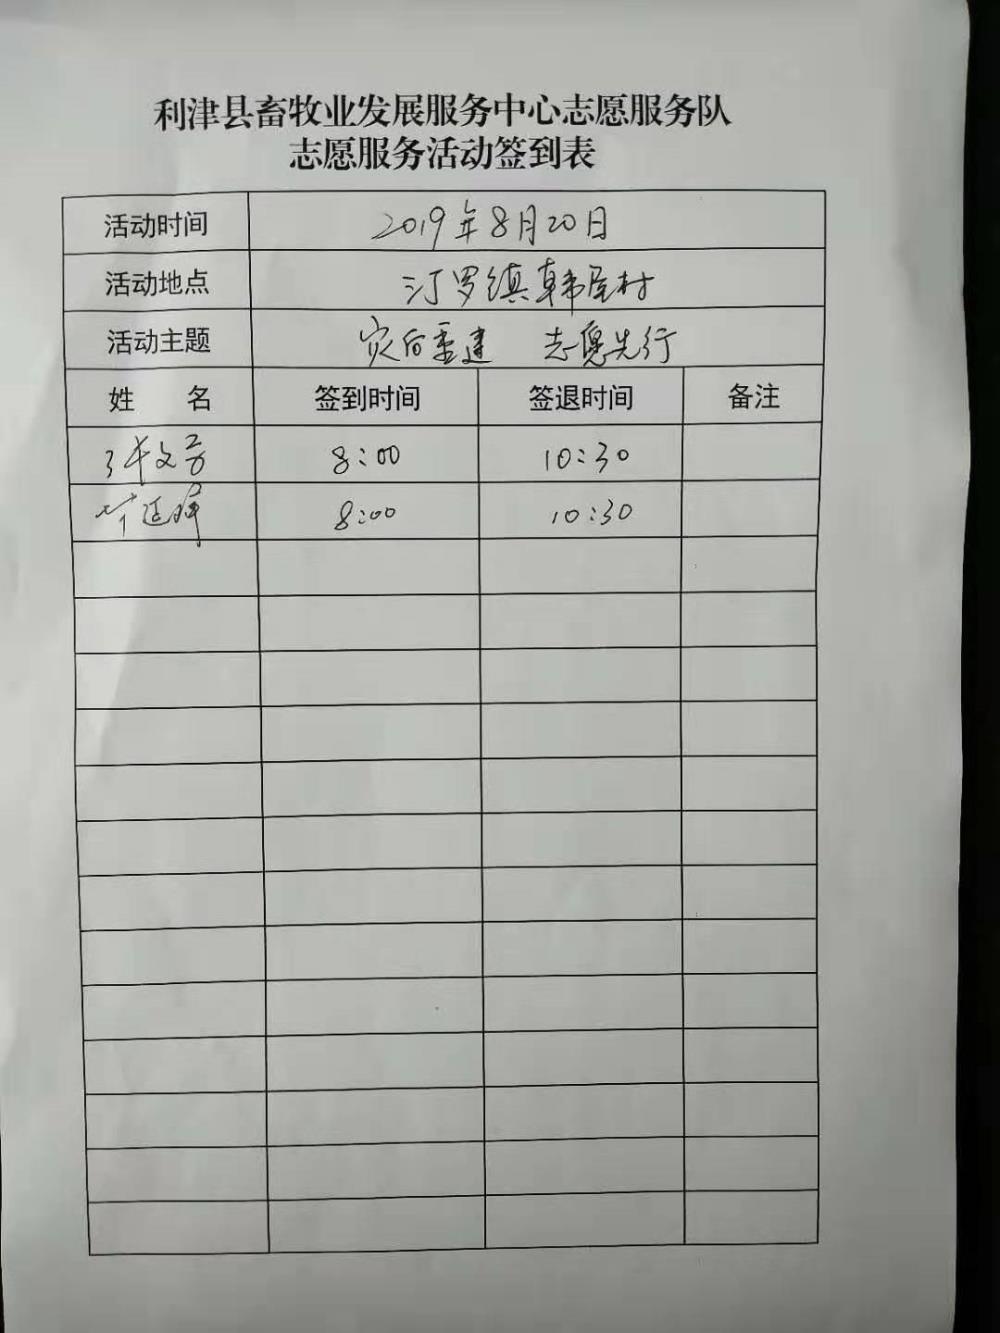 利津县畜牧业发展服务中心志愿服务队
志愿服务活动签到表
活动时间 2019年8月20日
活动地点 汀罗镇韩屋村
活动主题 灾后重建 志愿先行
姓 名 签到时间 签退时间 备注
张文芳 8:00 10:30
延辉 8:00 10:30